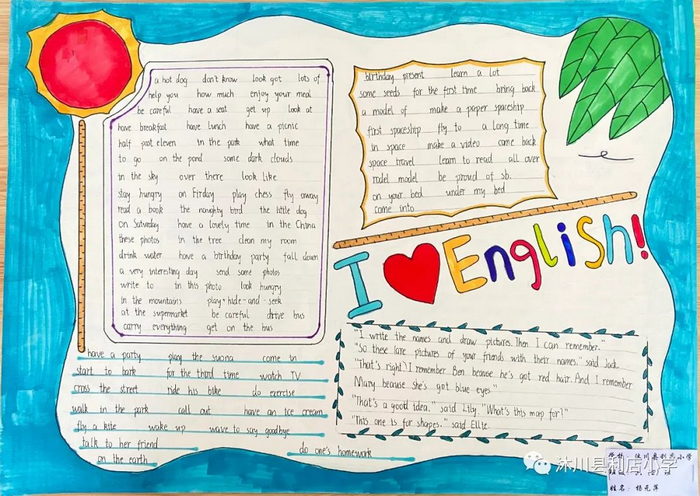 a hot dog don't know look got lots of
help you how much enjoy your meal
be careful have a seat get up look at
have breakfast have lunch have a picnic
half past eleven in the park what time
to go on the pond some dark clouds
in the sky over there look like
stay hungry on Firday play chess fly away
read a book the naughty bird the little dog
on Saturday have a lovely time in the China
these photos in the tree clean my room
drink water have a birthday party fall down
a very interesting day send some photos
write to in this photo look hungry
in the mountains play-hide-and-seek
at the supermarket be careful drive bus
carry everything get on the bus
have a party play the suona come in
start to bark for the third time watch TV
cross the street ride his bike do exercise
walk in the park call out have an ice cream
fly a kite wake up wave to say goodbye
talk to her friend do one's homework
on the earth
birthday present learn a lot
some seeds for the first time bring back
a model of make a paper spaceship
first spaceship fly to a long time
in space make a video come back
space travel learn to read all over
rodel model be proud of sb.
on your bed under my bed
come into
I English!
"I write the names and draw pictures. Then I can remember."
"So these lare pictures of your friends with their names." said Jack.
"That's right! I remember Ben because he's got red hair. And I remember
Mary because she's got blue eyes."
"That's a good idea." said Lily. "What's this map for?"
"This one is for shapes." said Ellie.
沐川县利店小学
姓名: 杨